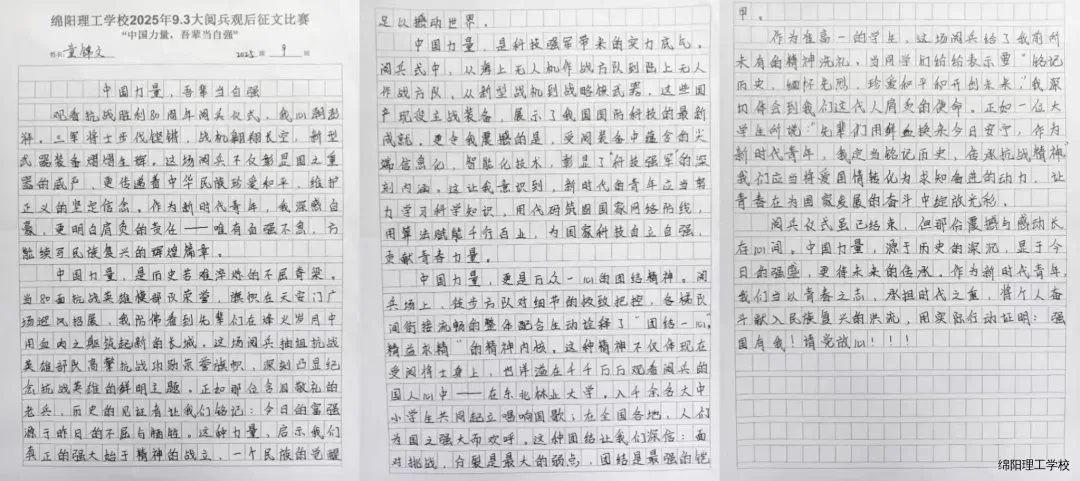 绵阳理工学校2025年9.3大阅兵观后征文比赛
“中国力量，吾辈当自强”
姓名 童锦文 2025 班 9
中国力量，吾辈当自强
观看抗战胜利80周年阅兵仪式，我心潮澎
湃，三军将士步伐铿锵，战机翱翔长空，新型
武器装备熠熠生辉。这场阅兵不仅彰显国之重
器的威严，更传递着中华民族珍爱和平、维护
正义的坚定信念。作为新时代青年，我深感自
豪，更明白肩负的责任——唯有自强不息，方
能续写民族复兴的辉煌篇章。
中国力量，是历史苦难淬炼的不屈脊梁。
当80面抗战英雄模部队荣誉，旗帜在天安门广
场迎风招展，我仿佛看到先辈们在烽火岁月中
用血肉之躯筑起新的长城。这场阅兵抽组抗战
英雄部队高擎抗战功勋荣誉旗帜，深刻凸显纪
念抗战英雄的鲜明主题。正如那位含泪敬礼的
老兵，历史的见证者让我们铭记：今日的富强
源于昨日的不屈与牺牲。这种力量，启示我们
真正的强大始于精神的战立，一个民族的觉醒
足以撼动世界。
中国力量，是科技强军带来的实力底气。
阅兵式中，从海上无人机作战方队到陆上无人
作战方队，从新型战机到战略核武器，这些国
产现役主战装备，展示了我国国防科技的最新
成就。更令我震撼的是，受阅装备中蕴含的尖
端信息化，智能化技术，彰显了“科技强军”的深
刻内涵。这让我意识到，新时代的青年应当努
力学习科学知识，用代码筑固国家网络防线，
用算法赋能千行百业，为国家科技自立自强，
贡献青春力量。
中国力量，更是万众一心的团结精神。阅
兵场上，徒步方队对细节的极致把控，各梯队
间衔接流畅的整体配合生动诠释了“团结一心，
精益求精”的精神内核。这种精神不仅体现在
受阅将士身上，也洋溢在千千万万观看阅兵的
国人心中——在东北林业大学，入千余名大中
小学生共同起立唱响国歌；在全国各地，人们
为国之强大而欢呼。这种团结让我们深信：面
对挑战，分裂是最大的弱点，团结是最强的铠
甲。
作为准高一的学生，这场阅兵给了我前所
未有的精神洗礼。当同学们纷纷表示要“铭记
历史，缅怀先烈，珍爱和平和开创未来，”我深
切体会到我们这代人肩负的使命。正如一位大
学生所说：“先辈们用鲜血换来今日安宁，作为
新时代青年，我定当铭记历史，传承抗战精神”
我们应当将爱国情转化为求知奋进的动力，让
青春在为国家发展的奋斗中绽放光彩。
阅兵仪式虽已结束，但那份震撼与感动长
存心间。中国力量，源于历史的深沉，显于今
日的强盛，更待未来的传承。作为新时代青年，
我们当以青春之志，承担时代之重，将个人奋
斗献入民族复兴的洪流，用实际行动证明：强
国有我！请党放心！！！
绵阳理工学校